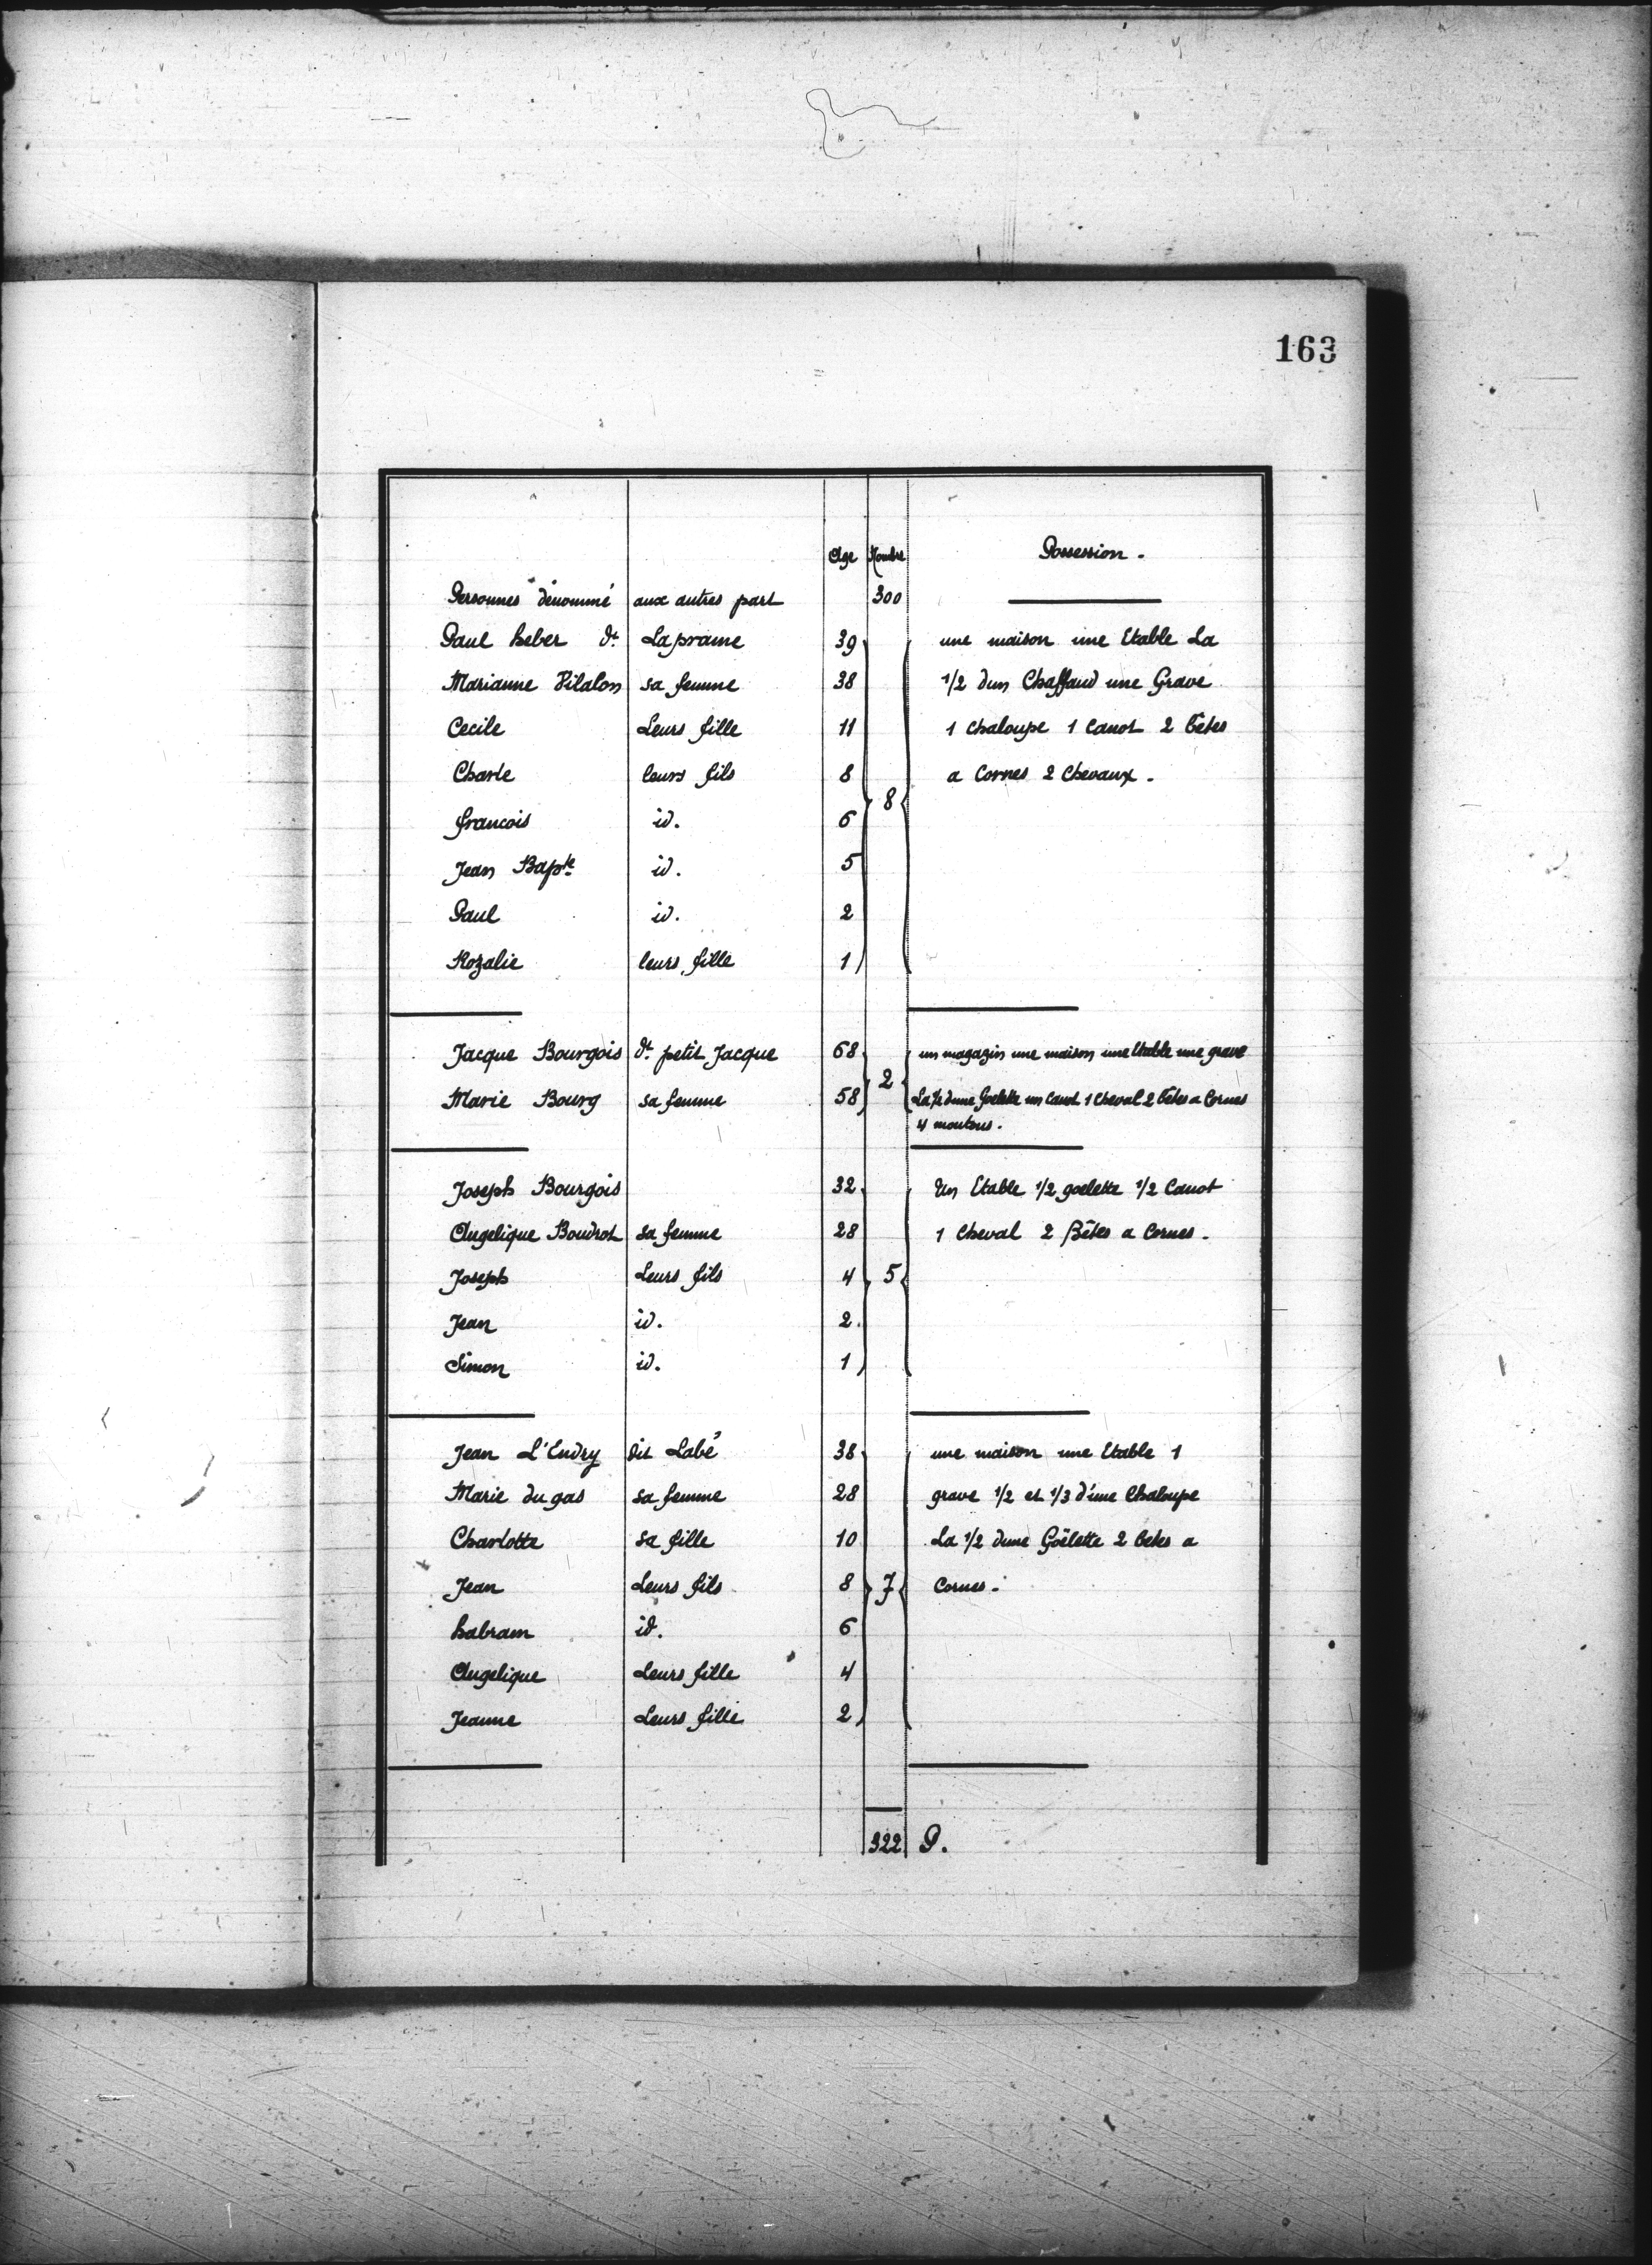 163
Age Nombre Possession.
Personnes dénommé aux autres part 300
Paul heber dt. Lapraine 39 une maison une Etable La
Marianne Vilalon sa femme 38 1/2 dun Chaffaud une Grave
Cecile Leurs fille 11 1 Chaloupe 1 Canot 2 bêtes
Charle leurs fils 8 a Cornes 2 Chevaux.
8
francois id. 6
Jean Bapte. id. 5
Paul id. 2
Rozalie leurs fille 1
Jacque Bourgois dt. petit Jacque 68 un magazin une maison une Etable une grave
2
Marie Bourg sa femme 58 La 1/2 dune Goelette un Canot 1 Cheval 2 bêtes a Cornes
4 moutons.
Joseph Bourgois 32 Un Etable 1/2 goelette 1/2 Canot
Angelique Boudrot sa femme 28 1 Cheval 2 Bêtes a Cornes.
Joseph Leurs fils 4 5
Jean id. 2
Simon id. 1
Jean L'Endry dit Labé 38 une maison une Etable 1
Marie du gas sa femme 28 grave 1/2 et 1/3 d'une Chaloupe
Charlotte sa fille 10 La 1/2 dune Goëlette 2 betes a
Jean Leurs fils 8 7 Cornes.
habram id. 6
Angelique Leurs fille 4
Jeanne Leurs fille 2
322 P.